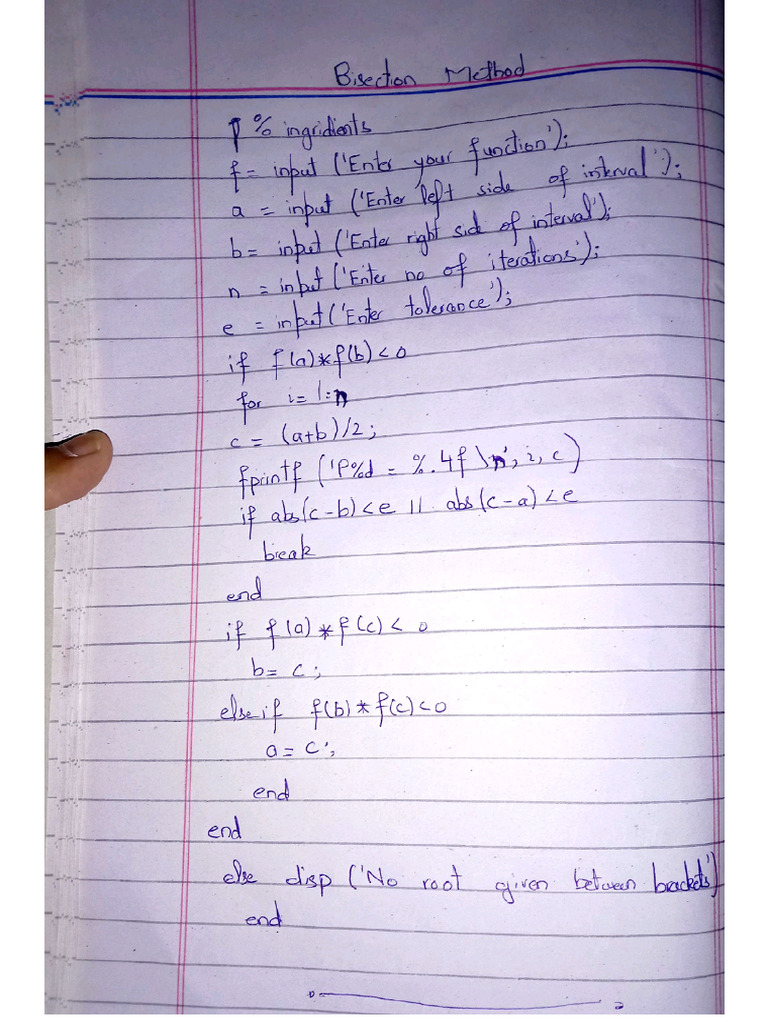 Bisection Method
% ingridients
f = input ('Enter your function');
a = input ('Enter left side of interval');
b = input ('Enter right side of interval');
n = input ('Enter no of iterations');
e = input ('Enter tolerance');
if f(a)*f(b)<0
for i=1:n
c = (a+b)/2;
fprintf ('P%d = %.4f \n', i, c)
if abs(c-b)<e || abs(c-a)<e
break
end
if f(a)*f(c)<0
b= c;
else if f(b)*f(c)<0
a = c;
end
end
else disp ('No root given between brackets')
end